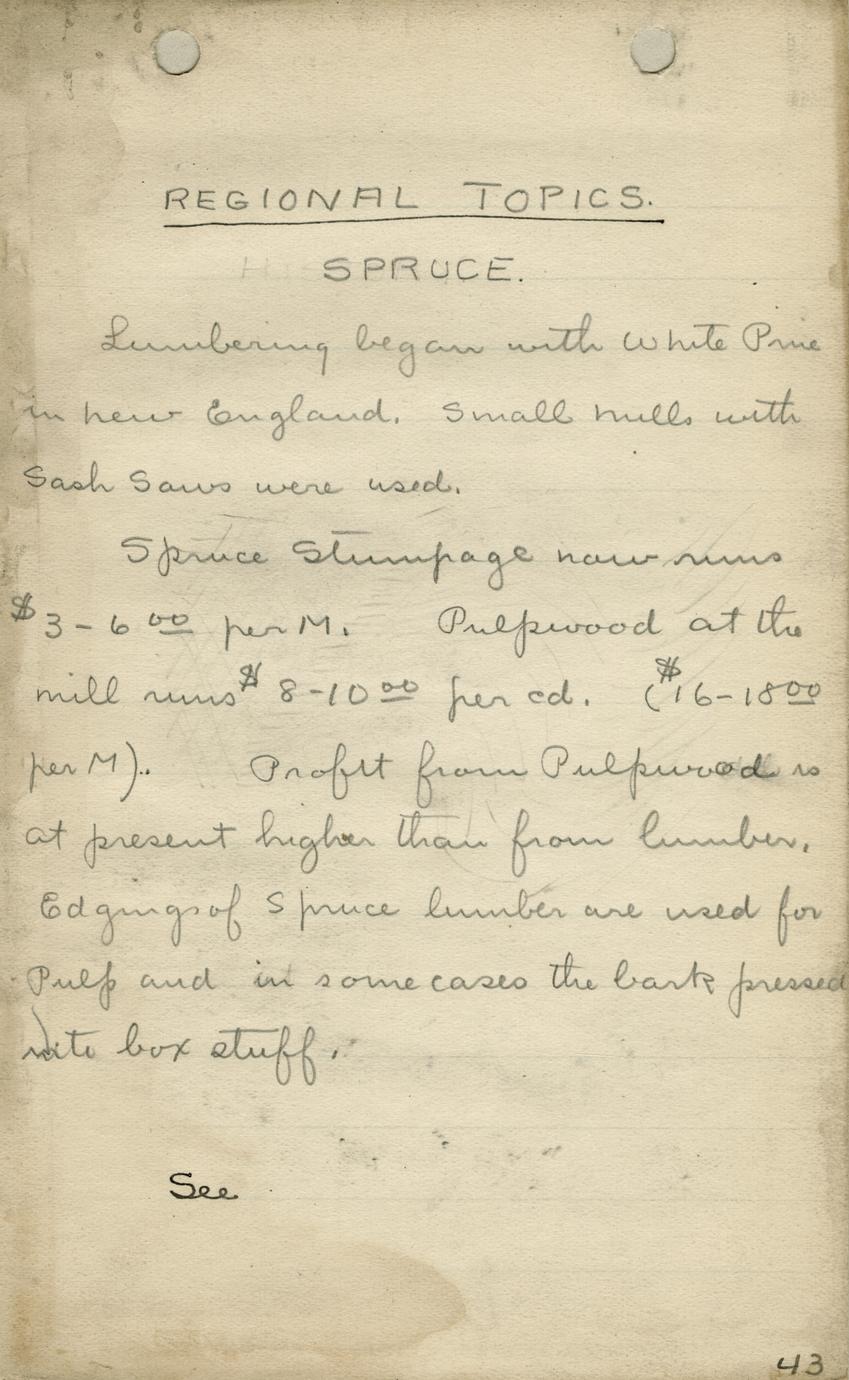 REGIONAL TOPICS.
SPRUCE.
Lumbering began with White Pine
in new England. Small mills with
Sash Saws were used.
Spruce Stumpage now runs
$3-6 00 per M. Pulpwood at the
mill runs $8-10 00 per cd. ($16-18 00
per M). Profit from Pulpwood is
at present higher than from lumber.
Edgings of Spruce lumber are used for
Pulp and in some cases the bark pressed
into box stuff.
See
43